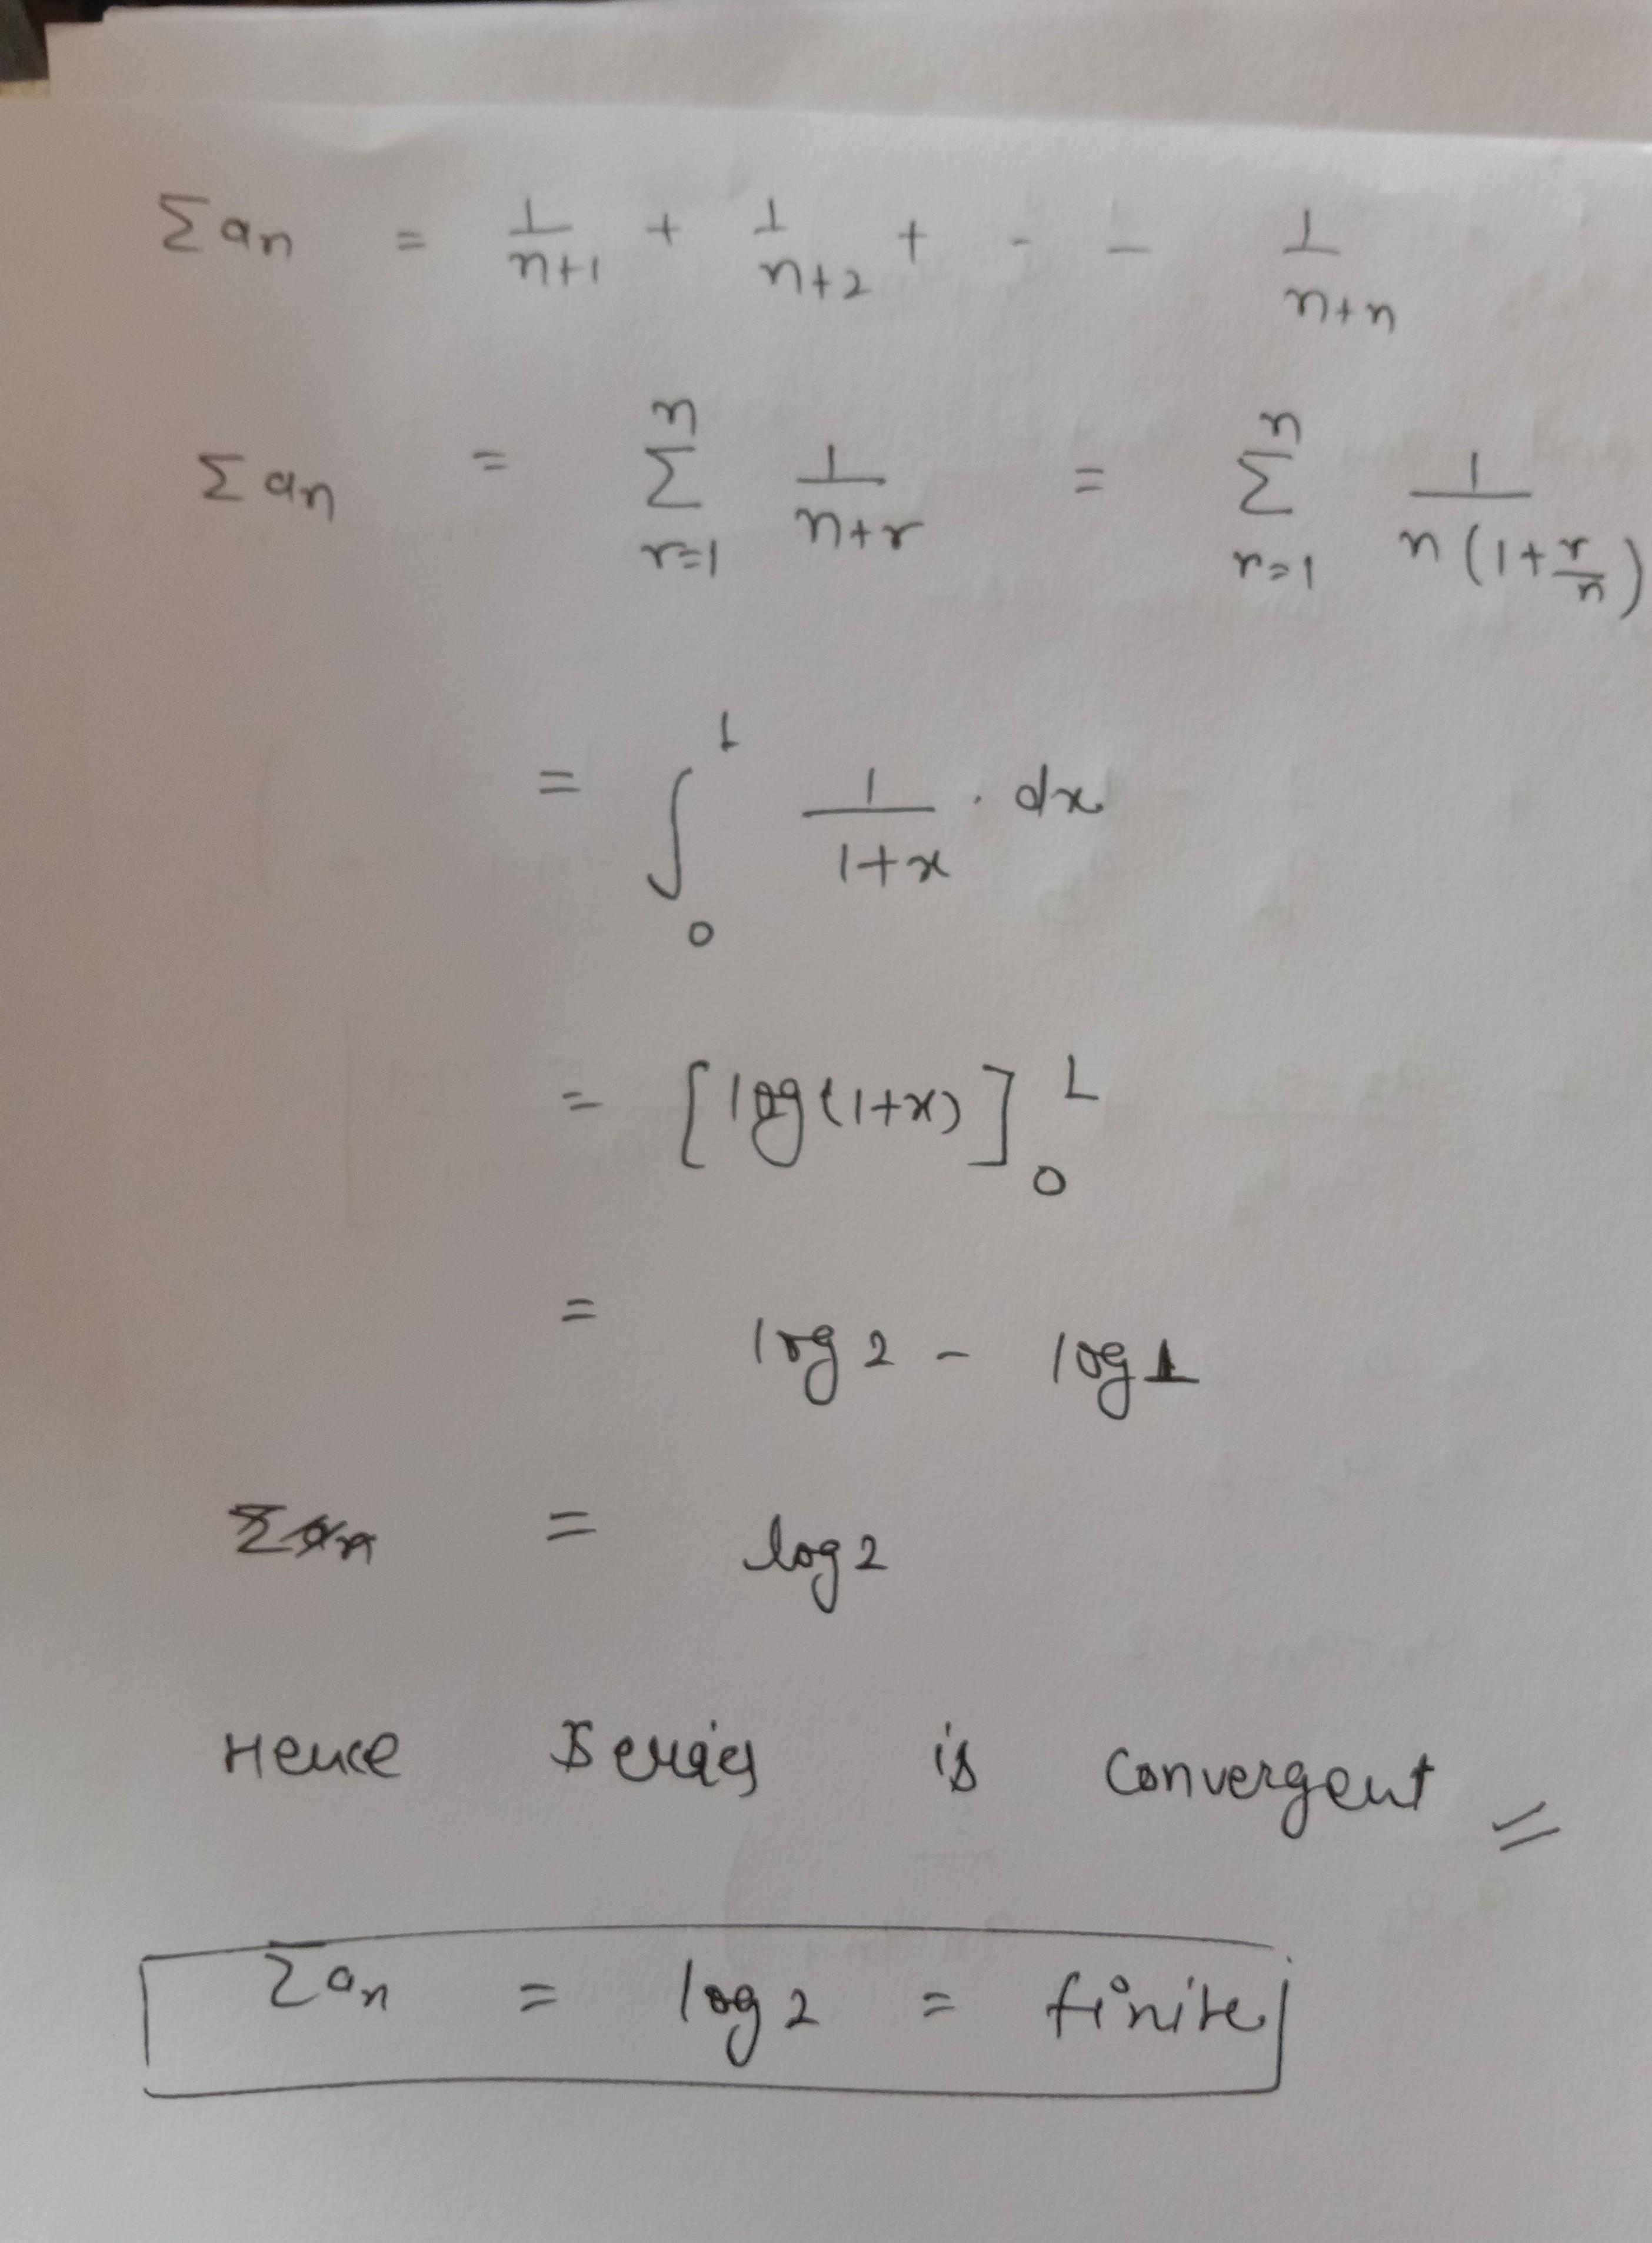 Σan = 1/n+1 + 1/n+2 + - - 1/n+n
Σan = n Σ r=1 1/n+r = n Σ r=1 1/n(1+r/n)
= ∫ 0 1 1/1+x . dx
= [log(1+x)] 1 0
= log2 - log1
Σan = log2
Hence Series is convergent
Σan = log2 = finite